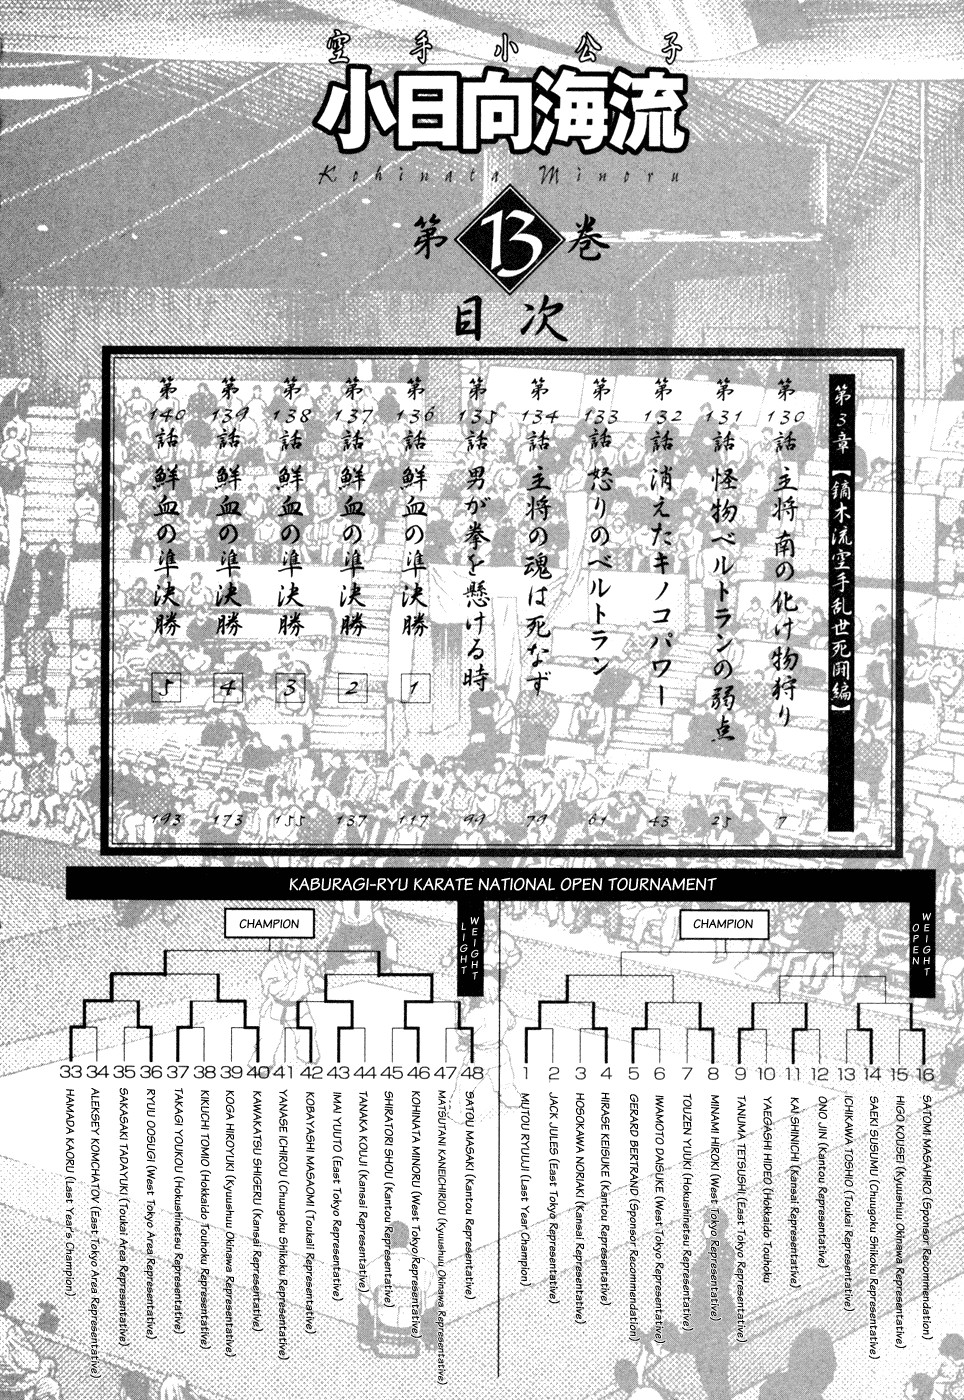 空手小公子
小日向海流
Kohinata Minoru
第13巻
目次
第3章【鏑木流空手乱世死闘編】
第130話 主将南の化け物狩り 7
第131話 怪物ベルトランの弱点 25
第132話 消えたキノコパワー 43
第133話 怒りのベルトラン 61
第134話 主将の魂は死なず 79
第135話 男が拳を懸ける時 99
第136話 鮮血の準決勝 1 117
第137話 鮮血の準決勝 2 137
第138話 鮮血の準決勝 3 155
第139話 鮮血の準決勝 4 173
第140話 鮮血の準決勝 5 193
KABURAGI-RYU KARATE NATIONAL OPEN TOURNAMENT
CHAMPION
LIGHT WEIGHT
33 HAMADA KAORU (Last Year's Champion)
34 ALEKSEY KOMCHATOV (East Tokyo Area Representative)
35 SAKASAKI TADAYUKI (Toukai Area Representative)
36 RYUU OOSUGI (West Tokyo Area Representative)
37 TAKAGI YOUKOU (Hokushinetsu Representative)
38 KIKUCHI TOMIO (Hokkaido Touhoku Representative)
39 KOGA HIROYUKI (Kyuushuu Okinawa Representative)
40 KAWAKATSU SHIGERU (Kansai Representative)
41 YANASE ICHIROU (Chuugoku Shikoku Representative)
42 KOBAYASHI MASAOMI (Toukaii Representative)
43 IMAI YUUTO (East Tokyo Representative)
44 TANAKA KOUJI (Kansai Representative)
45 SHIRATORI SHOU (Kantou Representative)
46 KOHINATA MINORU (West Tokyo Representative)
47 MATSUTANI KANEICHIROU (Kyuushuu Okinawa Representative)
48 SATOU MASAKI (Kantou Representative)
CHAMPION
OPEN WEIGHT
1 MUTOU RYUUJI (Last Year Champion)
2 JACK JULES (East Tokyo Representative)
3 HOSOKAWA NORIAKI (Kansai Representative)
4 HIRASE KEISUKE (Kantou Representative)
5 GERARD BERTRAND (Sponsor Recommendation)
6 IWAMOTO DAISUKE (West Tokyo Representative)
7 TOUZEN YUUKI (Hokushinetsu Representative)
8 MINAMI HIROKI (West Tokyo Representative)
9 TANUMA TETSUSHI (East Tokyo Representative)
10 YAEGASHI HIDEO (Hokkaido Touhoku
11 KAI SHINICHI (Kansai Representative)
12 ONO JIN (Kantou Representative)
13 ICHIKAWA TOSHIO (Toukai Representative)
14 SAEKI SUSUMU (Chuugoku Shikoku Representative)
15 HIGO KOUSEI (Kyuushuu Okinawa Representative)
16 SATOMI MASAHIRO (Sponsor Recommendation)